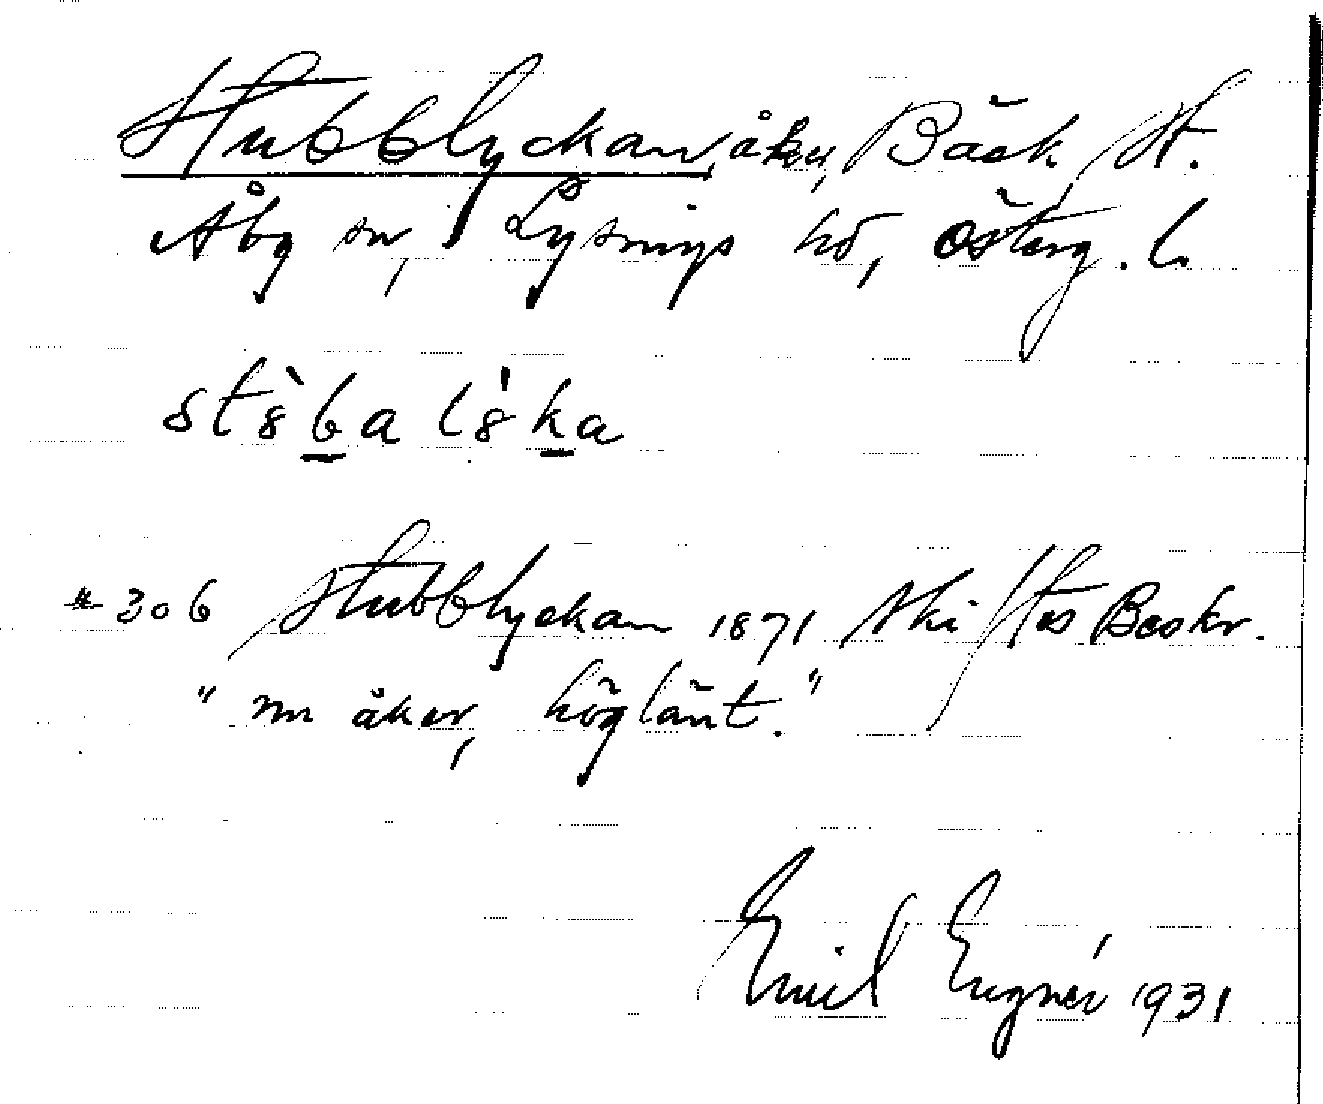 Stubblyckan, åker, Bäck, St.
Åby sn, Lysings hd, Österg. l.
st8̀ba l8̍ka
# 306 Stubblyckan 1871 Skiftes Beskr.
" nu åker, höglänt."
Emil Engnér 1931